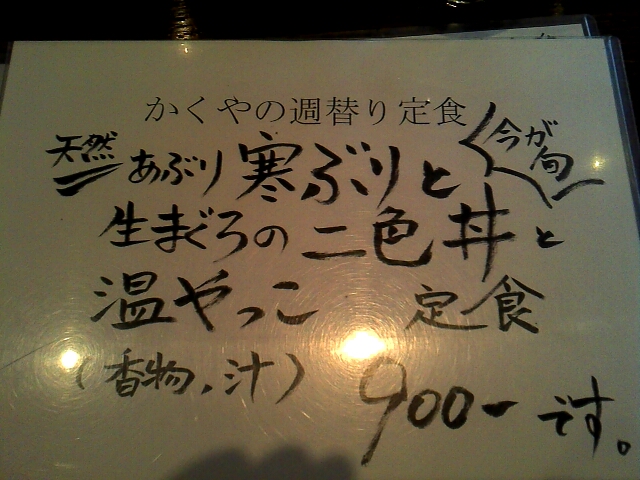 かくやの週替り定食
天然 あぶり寒ぶりと
今が旬
生まぐろの二色丼と
温やっこ 定食
(香物、汁) 900ーです。